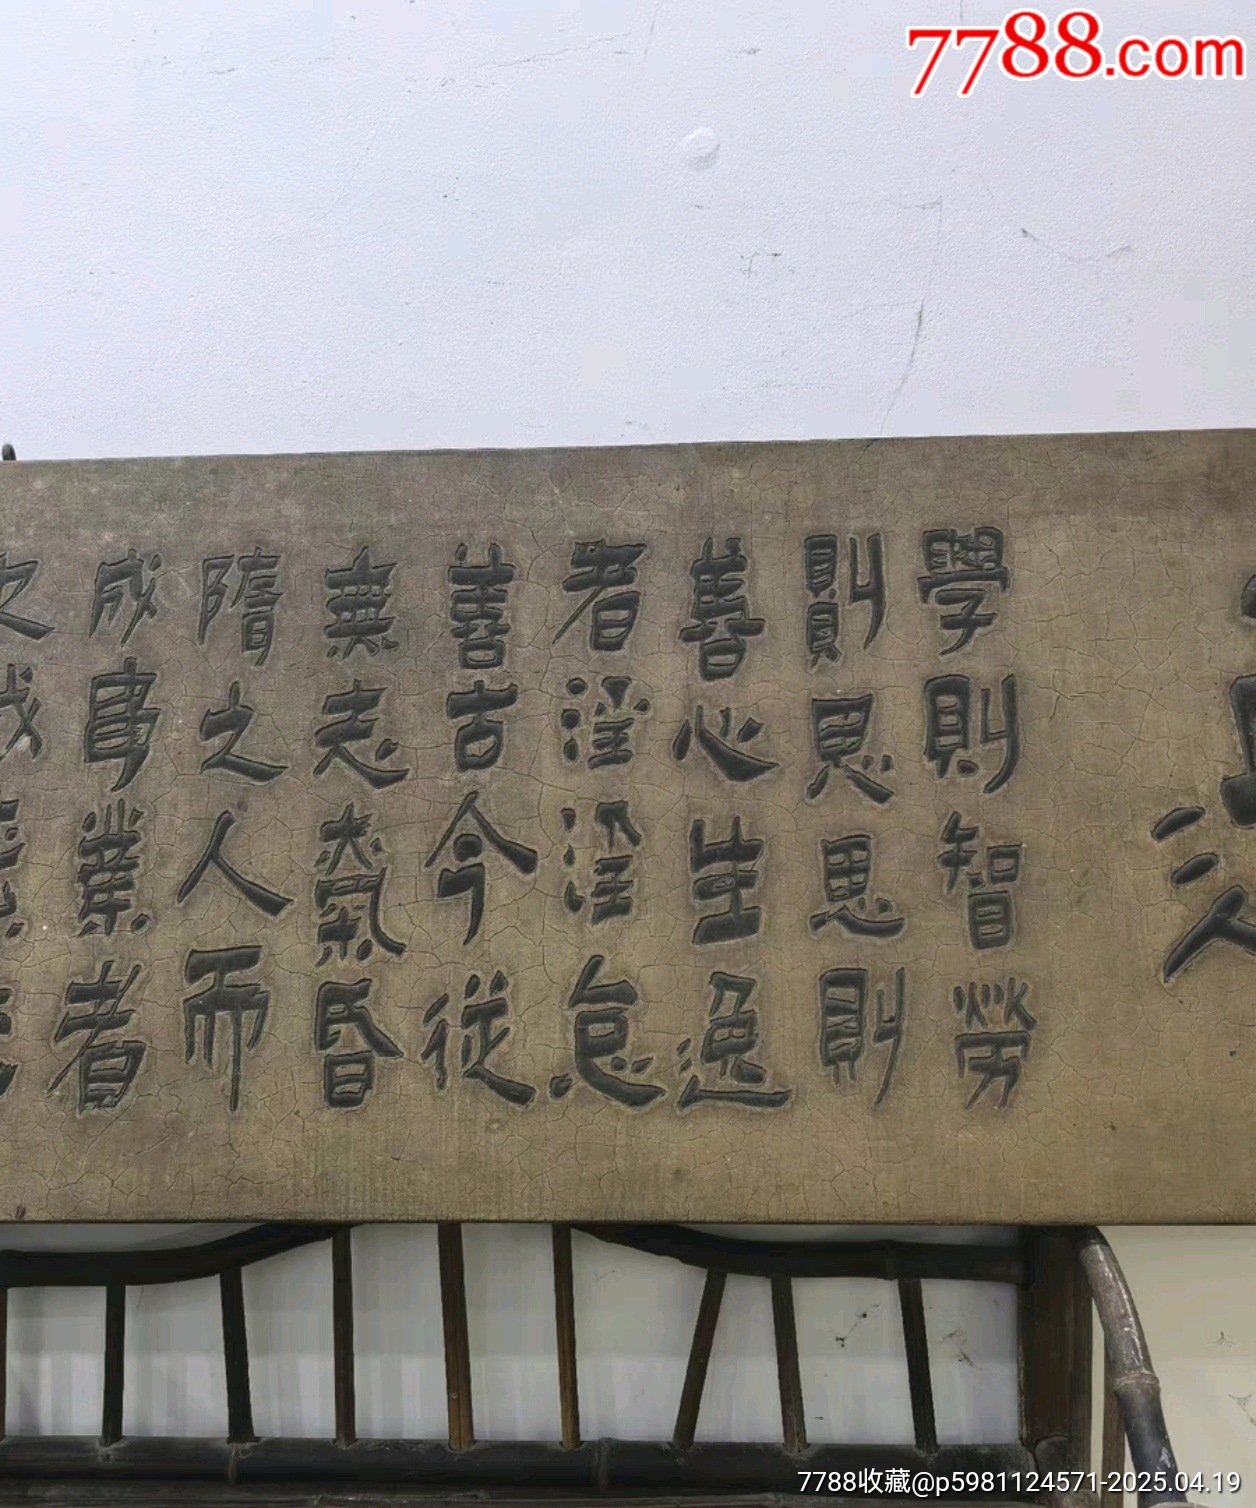 7788.com
學則智勞
則思思則
善心生逸
者淫淫怠
善古今從
無志氣昏
隋之人而
成事業者
7788收藏@p5981124571-2025.04.19